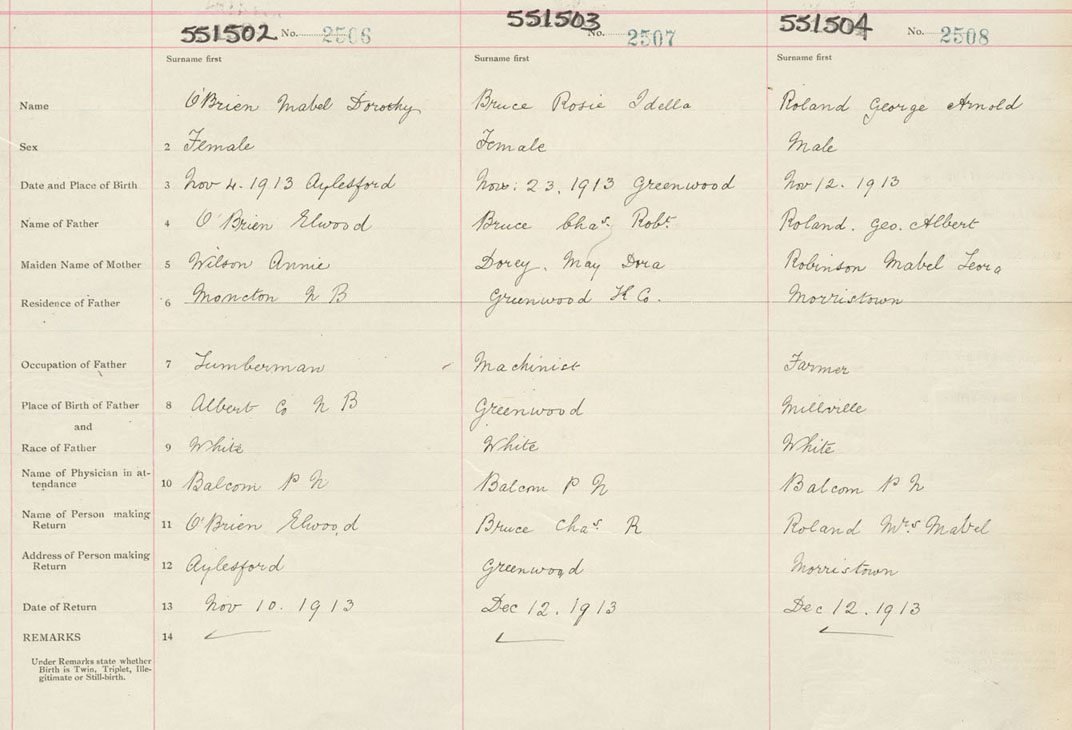 551502 No. 2506 551503 No. 2507 551504 No. 2508
Surname first Surname first Surname first
Name O'Brien Mabel Dorothy Bruce Rosie Idella Roland George Arnold
Sex 2 Female Female Male
Date and Place of Birth 3 Nov 4. 1913 Aylesford Nov. 23. 1913 Greenwood Nov 12. 1913
Name of Father 4 O'Brien Elwood Bruce Chas. Robt. Roland. Geo. Albert
Maiden Name of Mother 5 Wilson Annie Dorey. May Dora Robinson Mabel Leora
Residence of Father 6 Moncton N B Greenwood K Co. Morristown
Occupation of Father 7 Lumberman Machinist Farmer
Place of Birth of Father 8 Albert Co N B Greenwood Millville
and
Race of Father 9 White White White
Name of Physician in at-
tendance 10 Balcom P N Balcom P N Balcom P N
Name of Person making
Return 11 O'Brien Elwood Bruce Chas. R Roland Mrs Mabel
Address of Person making
Return 12 Aylesford Greenwood Morristown
Date of Return 13 Nov 10. 1913 Dec 12. 1913 Dec 12. 1913
REMARKS 14
Under Remarks state whether
Birth is Twin, Triplet, Ille-
gitimate or Still-birth.